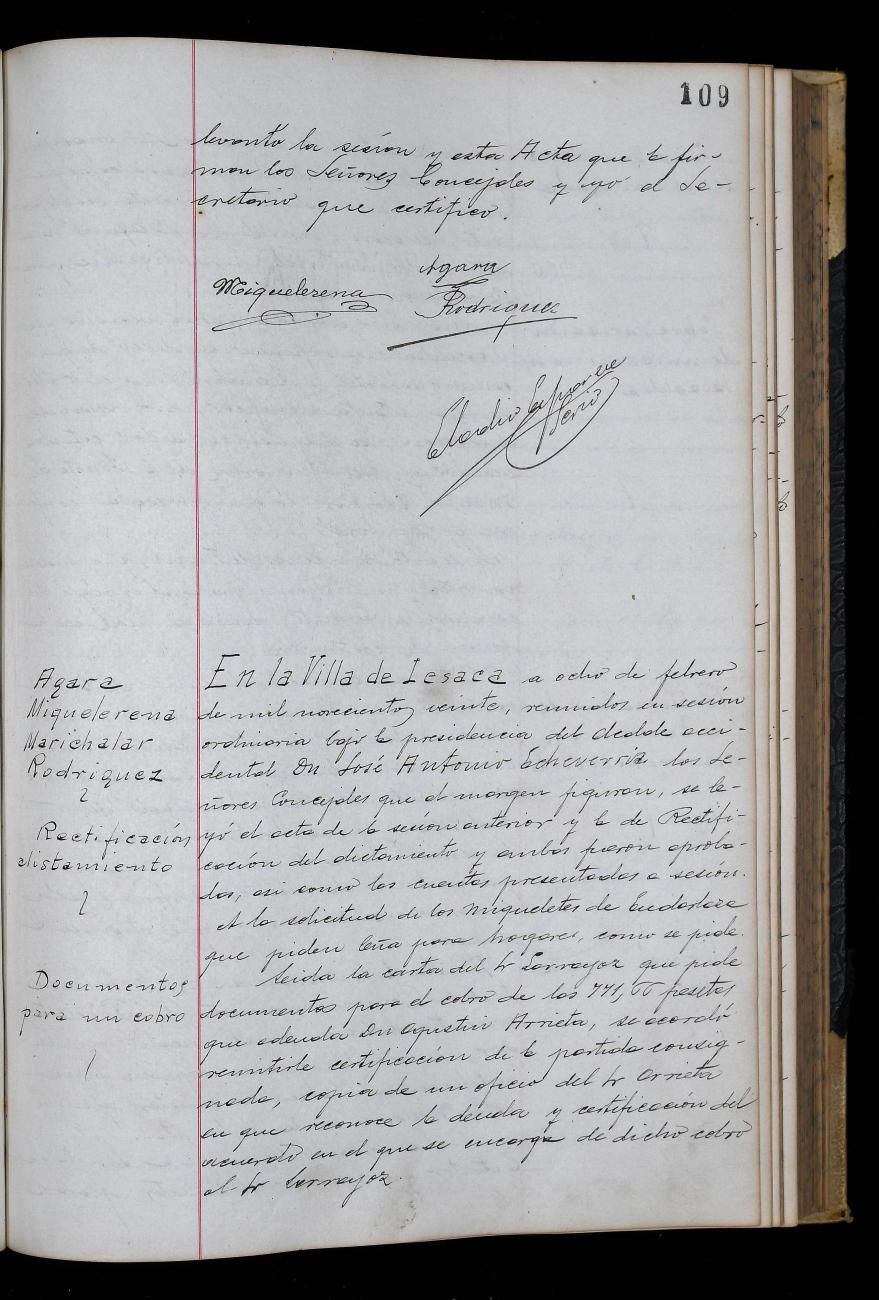 109
levantó la sesión y esta Acta que la fir-
man los Señores Concejales y yo el Se-
cretario que certifico.
Agara
Miquelerena
Rodriguez
Eladio Esparza
Serio
Agara
Miquelerena
Marichalar
Rodriguez
En la Villa de Lesaca a ocho de febrero
de mil novecientos veinte, reunidos en sesión
ordinaria bajo la presidencia del alcalde acci-
dental Dn José Antonio Echeverria los Se-
ñores Concejales que al margen figuran, se le-
yó el acta de la sesión anterior y la de Rectifi-
cación del alistamiento y ambas fueron aproba-
das, asi como las cuentas presentadas a sesión.
Rectificación
alistamiento
A la solicitud de los Miqueletes de Endarlaza
que piden leña para hogares, como se pide.
Documentos
para un cobro
Leida la carta del Sr Larrayoz que pide
documentos para el cobro de las pesetas
que adeuda Dn Agustin Arrieta, se acordó
remitirle certificación de la partida consig-
nada, copia de un oficio del Sr Arrieta
en que reconoce la deuda y certificación del
acuerdo en el que se encarga de dicho cobro
al Sr Larrayoz.